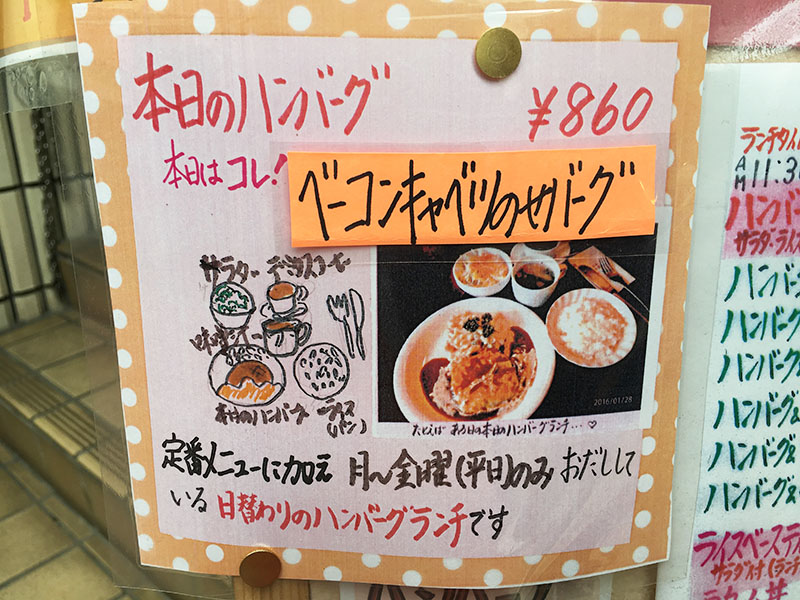 本日のハンバーグ
¥860
本日はコレ!
ベーコンキャベツのせバーグ
サラダ
味噌スープ
本日のハンバーグ
ライス
(パン)
2016/01/28
たとえば ある日の本日のハンバーグランチ...♡
定番メニューに加え 月〜金曜(平日)のみ おだしして
いる 日替わりのハンバーグランチです
ランチタイム
AM11:3
ハンバー
サラダ・ライス
ハンバーグ
ハンバーグ
ハンバーグ
ハンバーグ&
ハンバーグ&
ハンバーグ&
ライスベーステ
サラダ付(ランチ